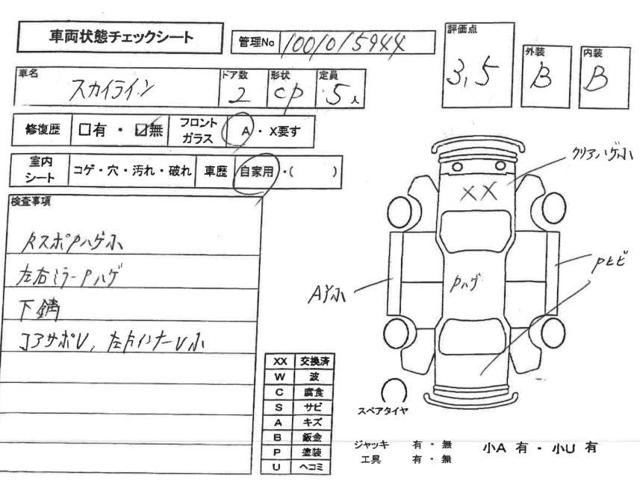 車両状態チェックシート
管理No 1001015944
評価点 3,5
外装 B
内装 B
車名 スカイライン
ドア数 2
形状 CP
定員 5人
修復歴 □有・☑無
フロントガラス A・X要す
室内シート コゲ・穴・汚れ・破れ
車歴 自家用・( )
検査事項
左右ミラーPハゲ
下錆
コアサポU, 左右インナーU小
クリアハゲ小
XX
Pハゲ
Pヒビ
AY小
スペアタイヤ
XX 交換済
W 波
C 腐食
S サビ
A キズ
B 鈑金
P 塗装
U ヘコミ
ジャッキ 有・無
工具 有・無
小A 有・小U 有